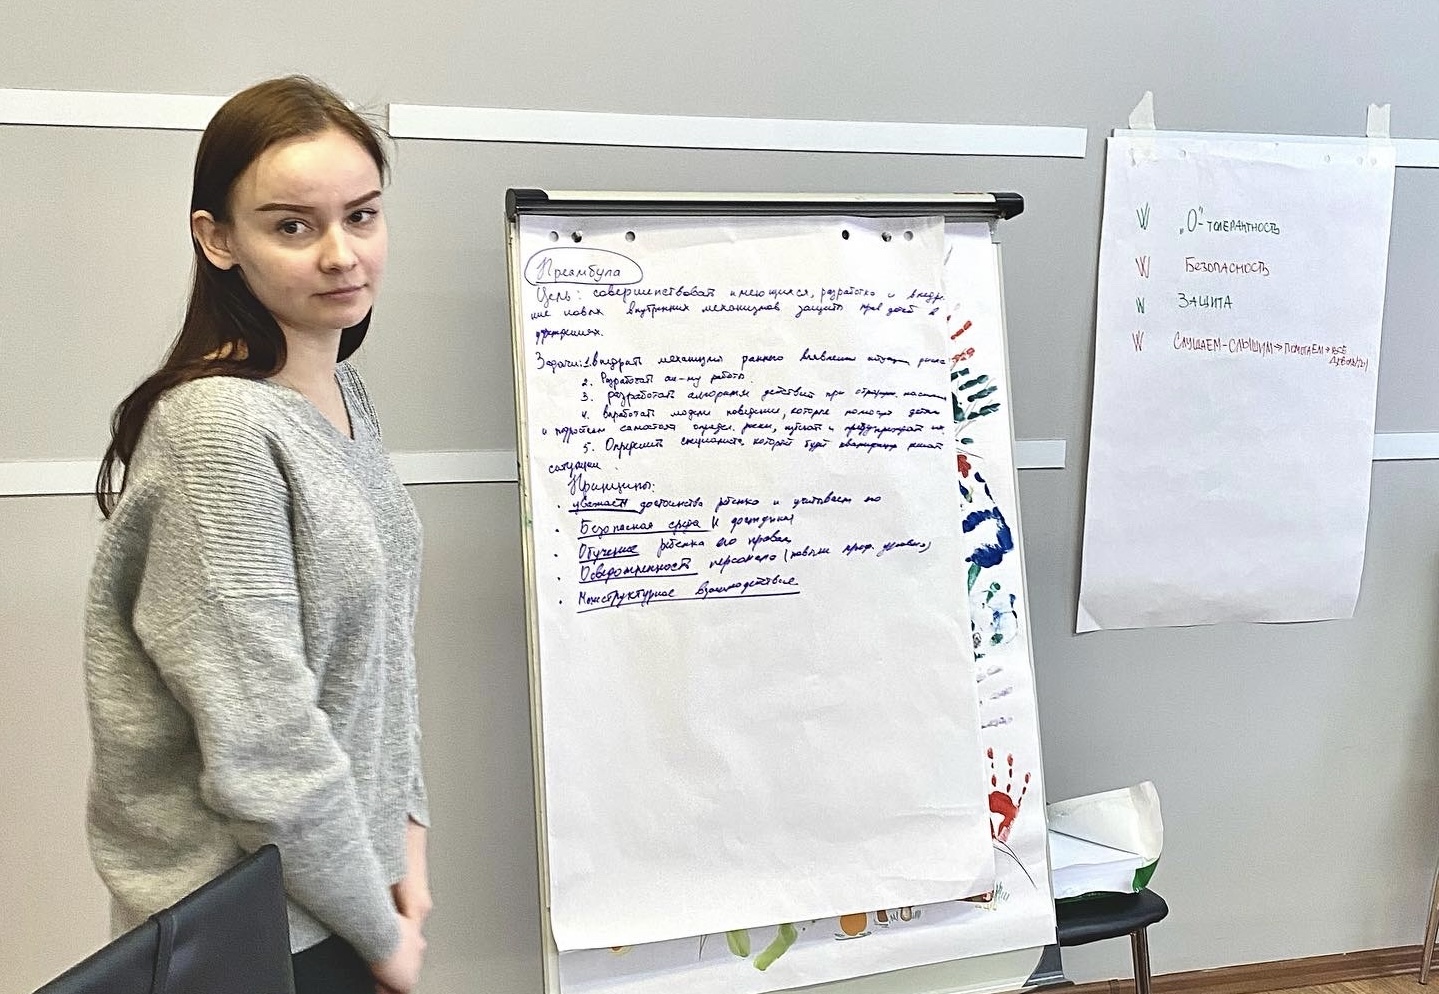 Преамбула
Цель: совершенствоват имеющихся, разработка и внедре
ние новых внутренних механизмов защиты прав детей в
учреждениях.
Задачи: 1. внедрить механизм раннего выявления риска
2. Разработат работы.
3. разработат алгоритм действий при
4. выработат модели поведения, которые помогут детям
и подросткам самостоят. опред. риски, и предупреждат их.
5. Определить специалиста, который будет решат
ситуации.
Принципы:
· уважает достоинства ребенка и учитывает
· Безопасная среда и доступная
· Обучение ребенка его правам
· Осведомленность персонала (
· Межструктурное взаимодействие
W "О"-толерантность
W Безопасность
W Защита
W Слушаем-слышим→помогаем→все
довольны